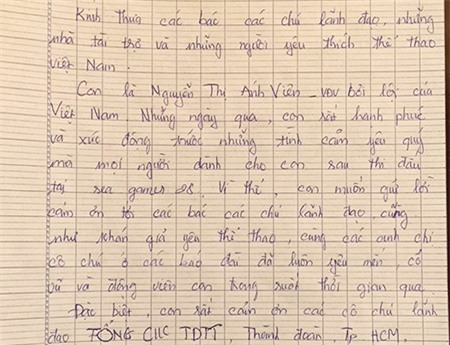 Kính thưa các bác các chú lãnh đạo, những
nhà tài trợ và những người yêu thích thể thao
Việt Nam.
Con là Nguyễn Thị Ánh Viên _ VĐV bơi lội của
Việt Nam. Những ngày qua, con rất hạnh phúc
và xúc động trước những tình cảm yêu quý
mà mọi người dành cho con sau thi đấu
tại sea games 28. Vì thế, con muốn gửi lời
cảm ơn tới các bác các chú lãnh đạo, cũng
như khán giả yêu thể thao, cùng các anh chị
cô chú ở các báo đài đã luôn yêu mến, cổ
vũ và động viên con trong suốt thời gian qua.
Đặc biệt, con rất cảm ơn các cô chú lãnh
đạo TỔNG CỤC TDTT, Thành đoàn, Tp HCM,